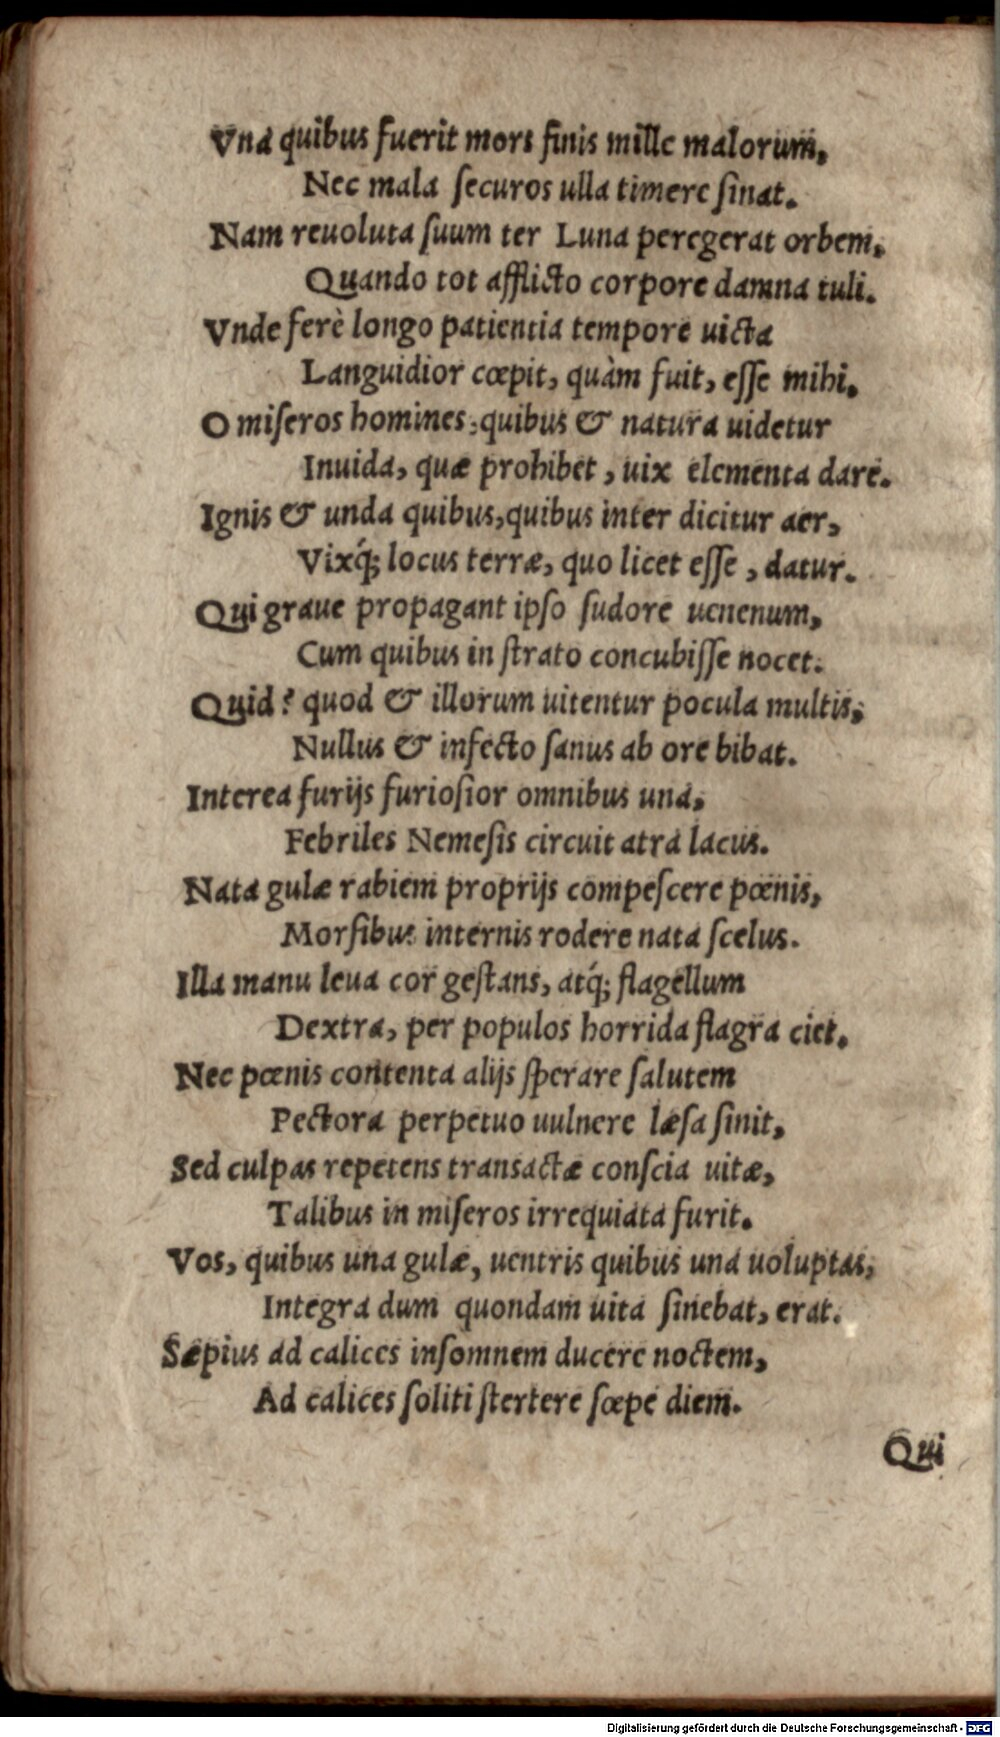 Vna quibus fuerit mors finis mille malorum,
Nec mala ſecuros ulla timere ſinat.
Nam reuoluta ſuum ter Luna peregerat orbem,
Quando tot afflicto corpore damna tuli.
Vnde ferè longo patientia tempore uicta
Languidior cœpit, quàm fuit, eſſe mihi.
O miſeros homines, quibus & natura uidetur
Inuida, quæ prohibet, uix elementa dare.
Ignis & unda quibus, quibus inter dicitur aer,
Vixq́; locus terræ, quo licet eſſe, datur.
Qui graue propagant ipſo ſudore uenenum,
Cum quibus in ſtrato concubiſſe nocet.
Quid? quod & illorum uitentur pocula multis,
Nullus & infecto ſanus ab ore bibat.
Interea furijs furioſior omnibus una,
Febriles Nemeſis circuit atra lacus.
Nata gulæ rabiem proprijs compeſcere pœnis,
Morſibus internis rodere nata ſcelus.
Illa manu leua cor geſtans, atq́; flagellum
Dextra, per populos horrida flagra ciet.
Nec pœnis contenta alijs ſperare ſalutem
Pectora perpetuo uulnere læſa ſinit,
Sed culpas repetens transactæ conſcia uitæ,
Talibus in miſeros irrequiata furit.
Vos, quibus una gulæ, uentris quibus una uoluptas,
Integra dum quondam uita ſinebat, erat.
Sæpius ad calices inſomnem ducere noctem,
Ad calices ſoliti ſtertere ſœpe diem.
Qui
Digitalisierung gefördert durch die Deutsche Forschungsgemeinschaft - DFG